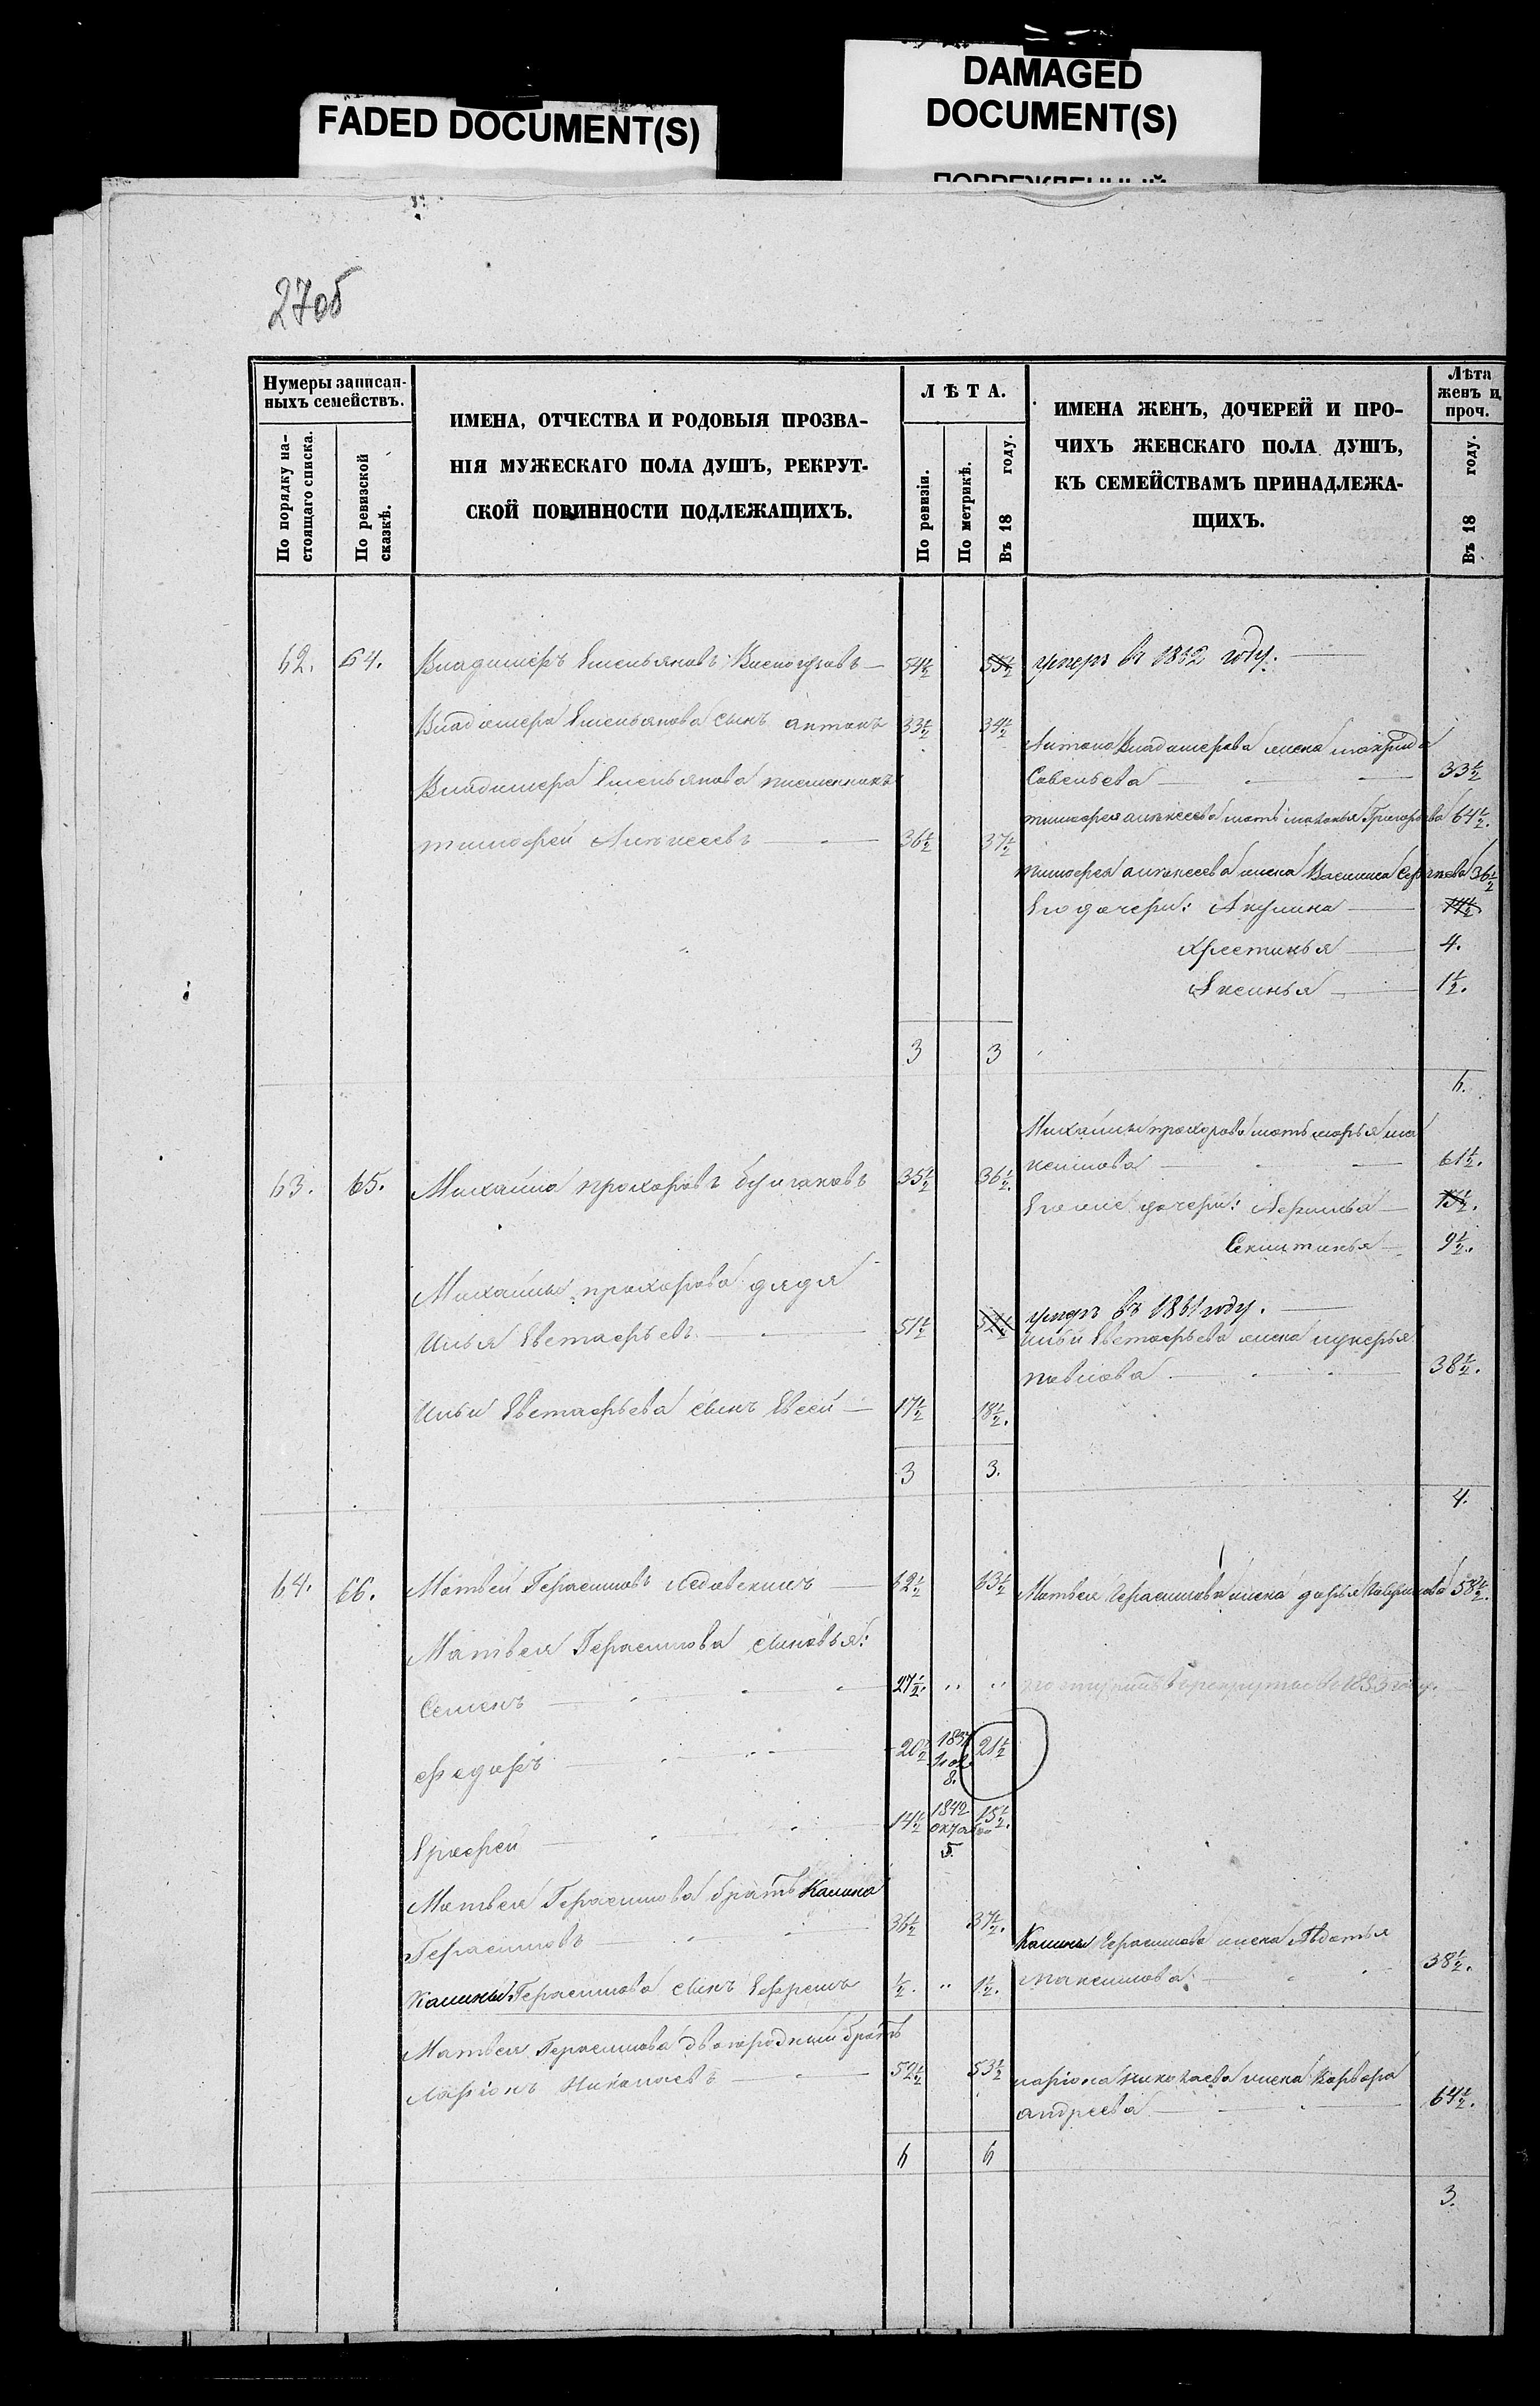 FADED DOCUMENT(S)
DAMAGED
DOCUMENT(S)
270б
Нумеры записан-
ныхъ семействъ.
По порядку на-
стоящаго списка.
По ревизской
сказкѣ.
ИМЕНА, ОТЧЕСТВА И РОДОВЫЯ ПРОЗВА-
НІЯ МУЖЕСКАГО ПОЛА ДУШЪ, РЕКРУТ-
СКОЙ ПОВИННОСТИ ПОДЛЕЖАЩИХЪ.
ЛѢТА.
По ревизіи.
По метрикѣ.
Въ 18 году.
ИМЕНА ЖЕНЪ, ДОЧЕРЕЙ И ПРО-
ЧИХЪ ЖЕНСКАГО ПОЛА ДУШЪ,
КЪ СЕМЕЙСТВАМЪ ПРИНАДЛЕЖА-
ЩИХЪ.
Лѣта
женъ и
проч.
Въ 18 году.
62. 64. Владимеръ Емельяновъ 54½ 55½ умеръ въ году.
Владимера Емельянова сынъ антонъ 33½ 34½
Антона Владимерова жена макрида
Савельева 33½
Владимера Емельянова племенникъ
тимофея алексеева мать маланья Григорьева 64½.
тимофей Алексеевъ 36½ 37½
тимофея алексеева жена Василиса 36½
Его дочери: Акулина 14½
Хрестинья 4.
Аксинья 1½.
3 3
6.
63. 65. Михайла прохоровъ булгаковъ 35½ 36½.
Михайлы прохорова мать марья ма
ксимова 61½.
Его же дочери: 13½.
Секлитинья 9½.
Михайлы прохорова дядя
Илья Евстафьевъ 51½ 52½ умеръ въ 1861 году.
Ильи Евстафьева жена лукерья
павлова 38½.
Ильи Евстафьева сынъ Евсей 17½ 18½.
3 3.
4.
64. 66. Матвей Герасимовъ 62½ 63½ Матвея Герасимова жена дарья 58½.
Матвея Герасимова сыновья:
Семенъ 27½. " " поступилъ в рекруты в 1853 году.
федоръ 20½ 1837 8. 21½
Ерофей 14½ 1842 октября 5. 15½.
Матвея Герасимова братъ Калина
Герасимовъ 36½ 37½. Калины Герасимова жена Авдотья
максимова 38½.
Калины Герасимова сынъ Ефремъ ½. " 1½.
Матвея Герасимова двоюродный братъ
Ларіонъ Николаевъ 52½ 53½ ларіона николаева жена Варвара
андреева 64½.
6 6
3.